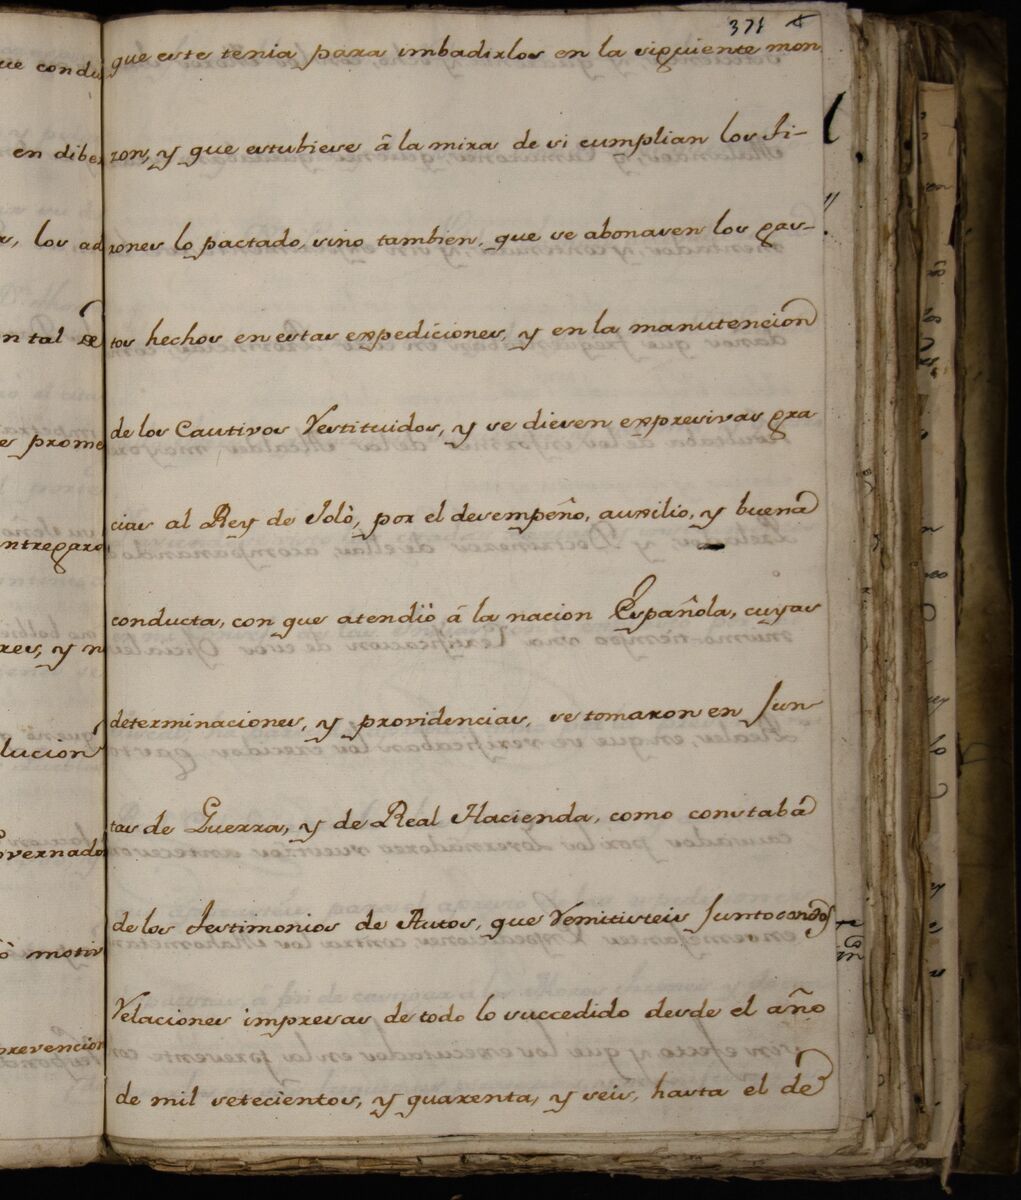 371
que este tenia para imbadirlos en la siguiente mon
zon, y que estubiese â la mira de si cumplian los Ti-
rones lo pactado, sino tambien, que se abonasen los gas-
tos hechos en estas expediciones, y en la manutencion
de los Cautivos Restituidos, y se diesen expresivas gra
cias al Rey de Jolò, por el desempeño, auxilio, y buena
conducta, con que atendiò á la nacion Española, cuyas
determinaciones, y providencias, se tomaron en Jun
tas de Guerra, y de Real Hacienda, como constaba
de los Testimonios de Autos, que Remitisteis Junto con dos
Relaciones impresas de todo lo succedido desde el año
de mil setecientos, y quarenta, y seis, hasta el de